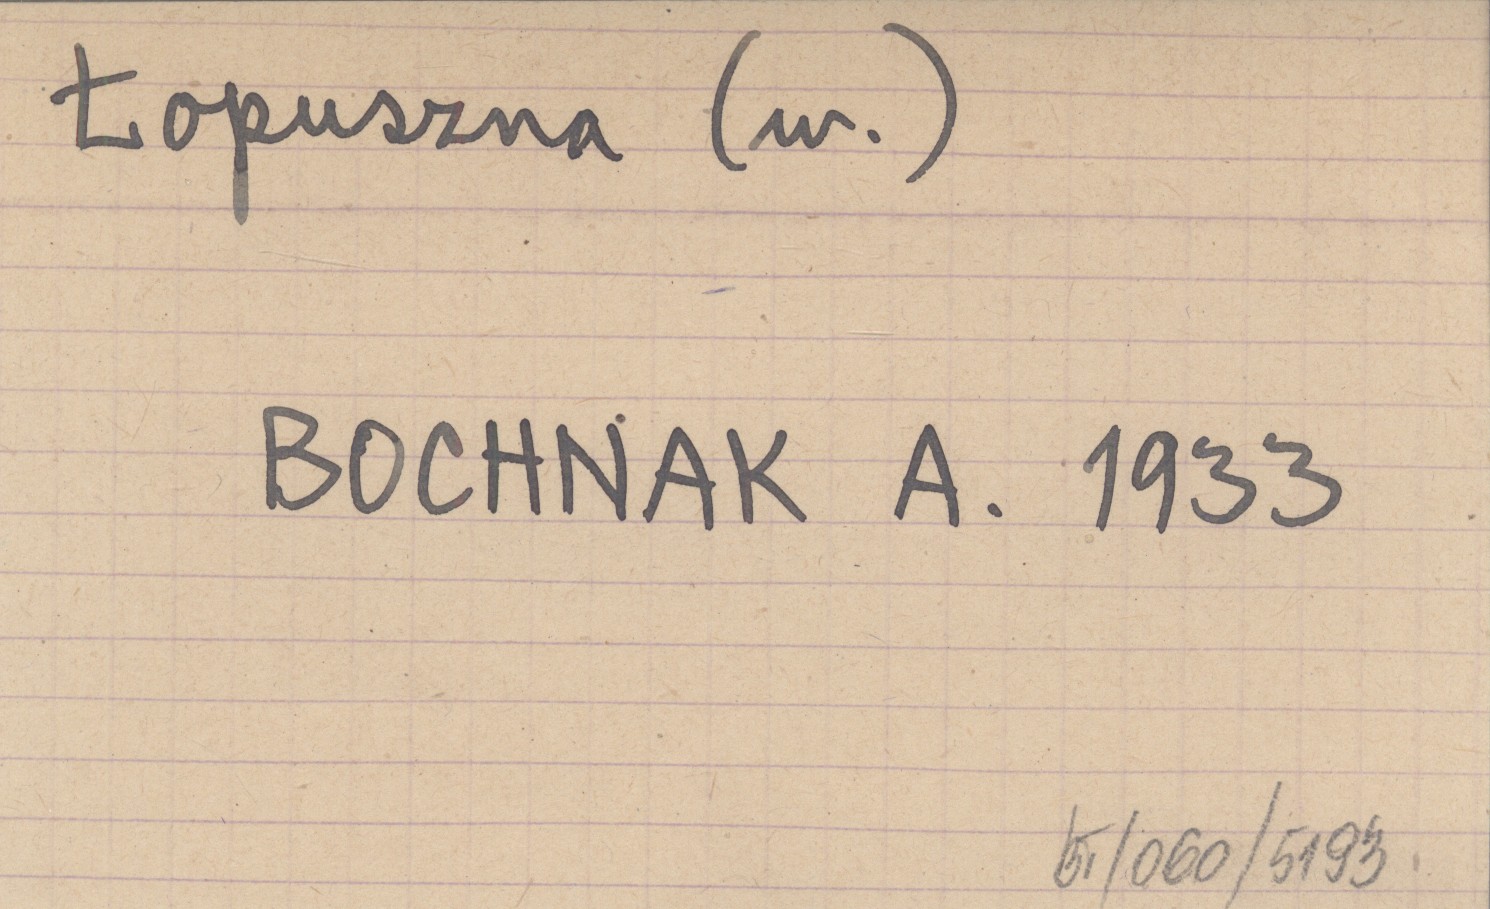 Łopuszna (w.)
BOCHNAK A. 1933
/060/5193